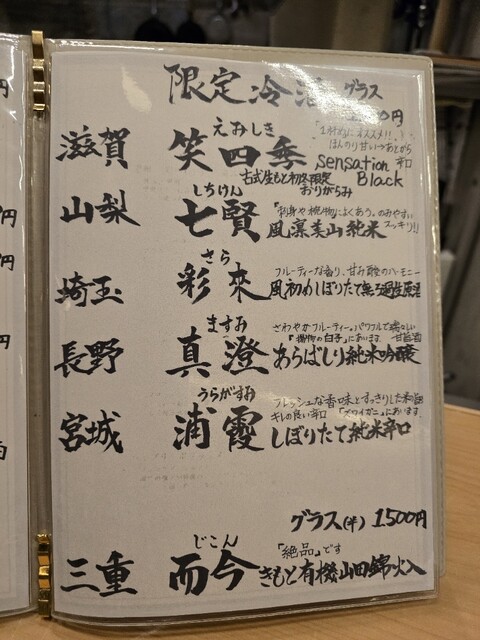 限定冷酒 グラス
円
えみしき 「1杯めにオススメ!!」
ほんのり甘い→あとから
滋賀 笑四季 Sensation 辛口
Black
古式生もと初冬限定
おりがらみ
しちけん 「刺身や椀物によくあう。のみやすい
山梨 七賢 風凛美山純米 スッキリ!!
さら フルーティーな香り、甘み酸のハーモニー
埼玉 彩來 風初めしぼりたて無ろ過生原酒
ますみ さわやかフルーティー。パワフルで瑞々しい
「揚物の白子」にあいます 甘旨酒
長野 真澄 あらばしり純米吟醸
うらがすみ フレッシュな香味とすっきりした米の旨
キレの良い辛口 「ズワイガニ」にあいます
宮城 浦霞 しぼりたて純米辛口
グラス(半) 1500円
じこん 「絶品」です
三重 而今 きもと有機山田錦火入
円
円
円
円